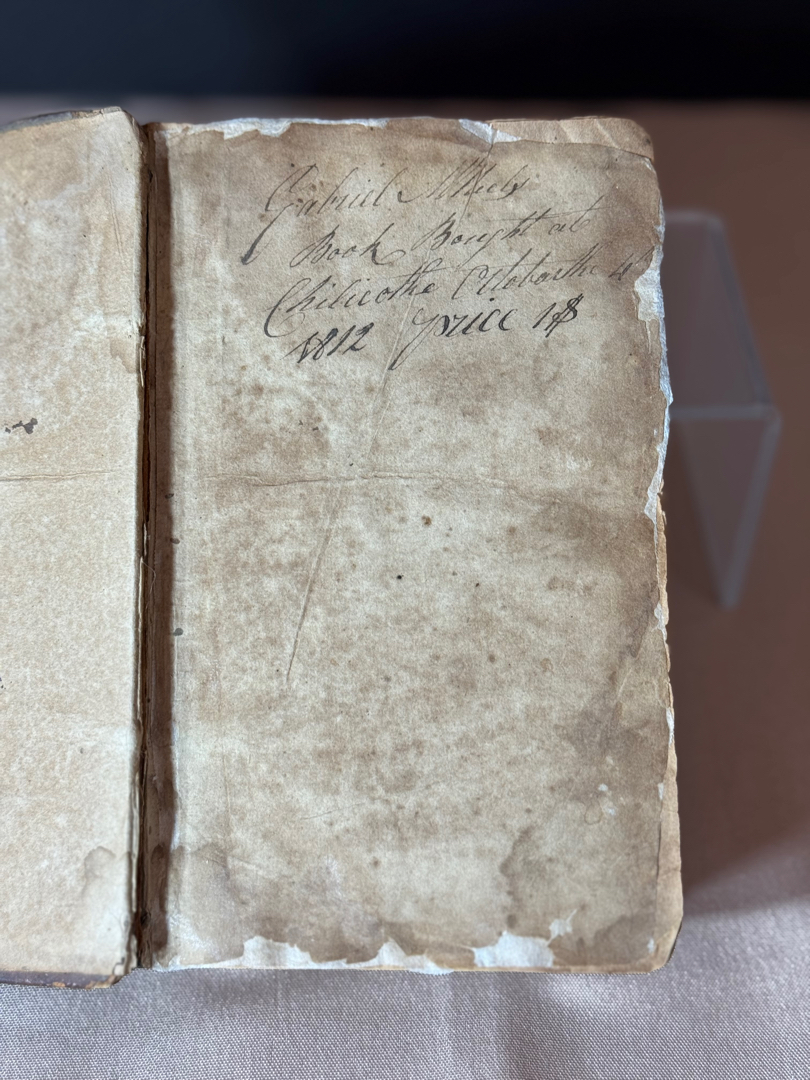 Gabriel
Book Bought at
Chilicothe Octobar the 4th
1812 price 1$